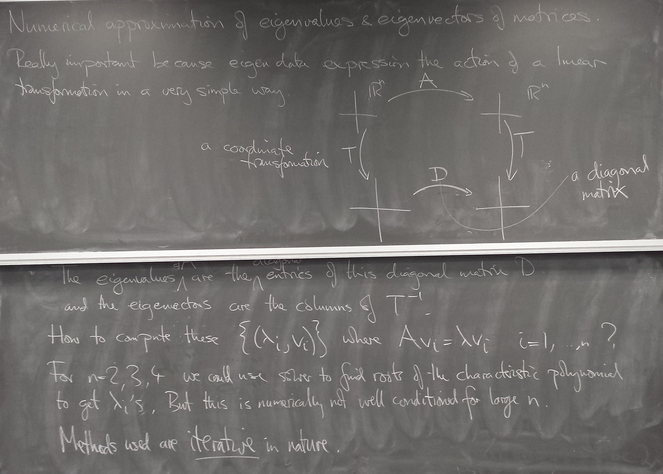 Numerical approximation of eigenvalues & eigenvectors of matrices.
Really important because eigen data expression the action of a linear
transformation in a very simple way
ℝⁿ A ℝⁿ
a coordinate
transformation
T T
D
a diagonal
matrix
The eigenvalues are the diagonal entries of this diagonal matrix D
and the eigenvectors are the columns of T⁻¹.
How to compute these {(λᵢ, vᵢ)} where Avᵢ = λvᵢ i=1, ..., n ?
For n=2,3,4 we could use solver to find roots of the characteristic polynomial
to get λᵢ's, But this is numerically not well conditioned for large n.
Methods used are iterative in nature.